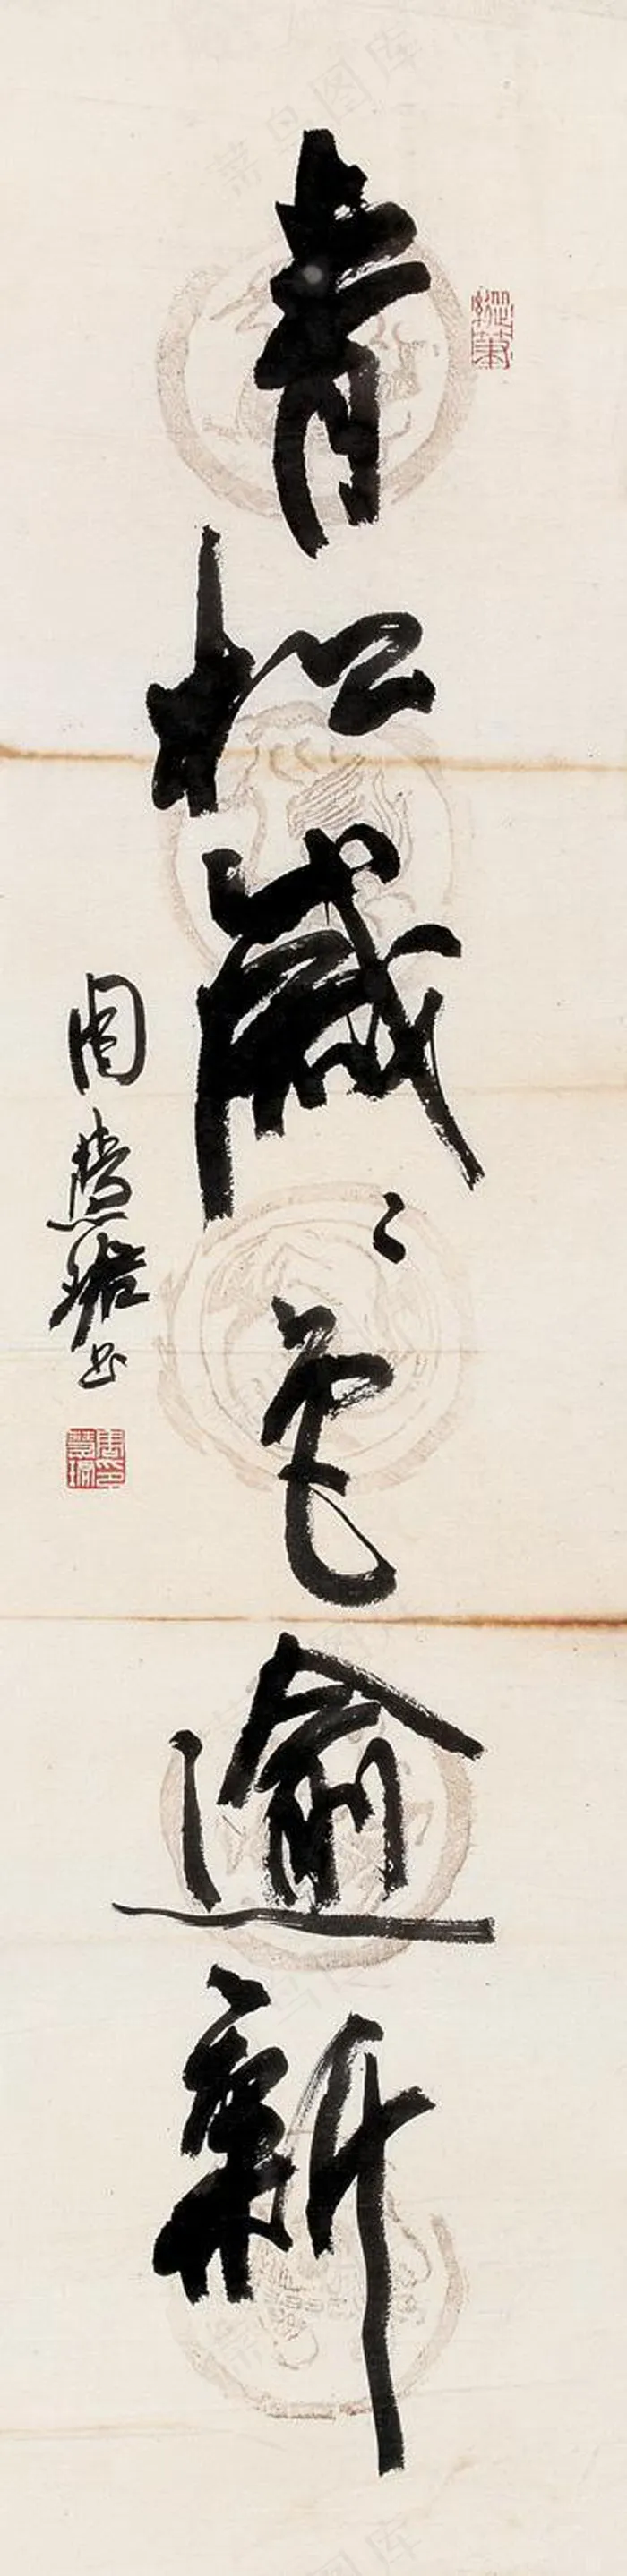 青松歲々色逾新
周慧珺书